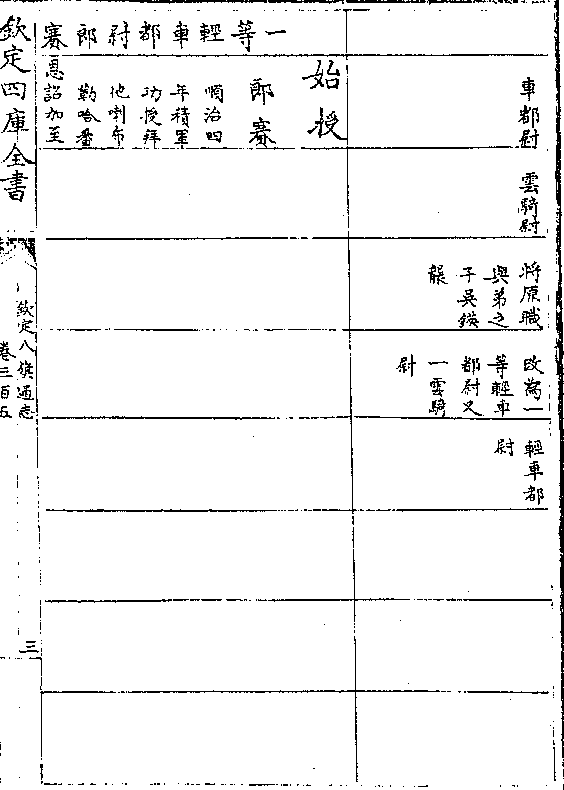 車都尉
雲騎尉
將原職
與弟之
子吳鍈
襲
改為一
等輕車
都尉又
一雲騎
尉
輕車都
尉
一等輕車都尉郎賽
始授
郎賽
順治四
年積軍
功授拜
他喇布
勒哈番
恩詔加至
欽定四庫全書
欽定八旗通志
卷三百五
三